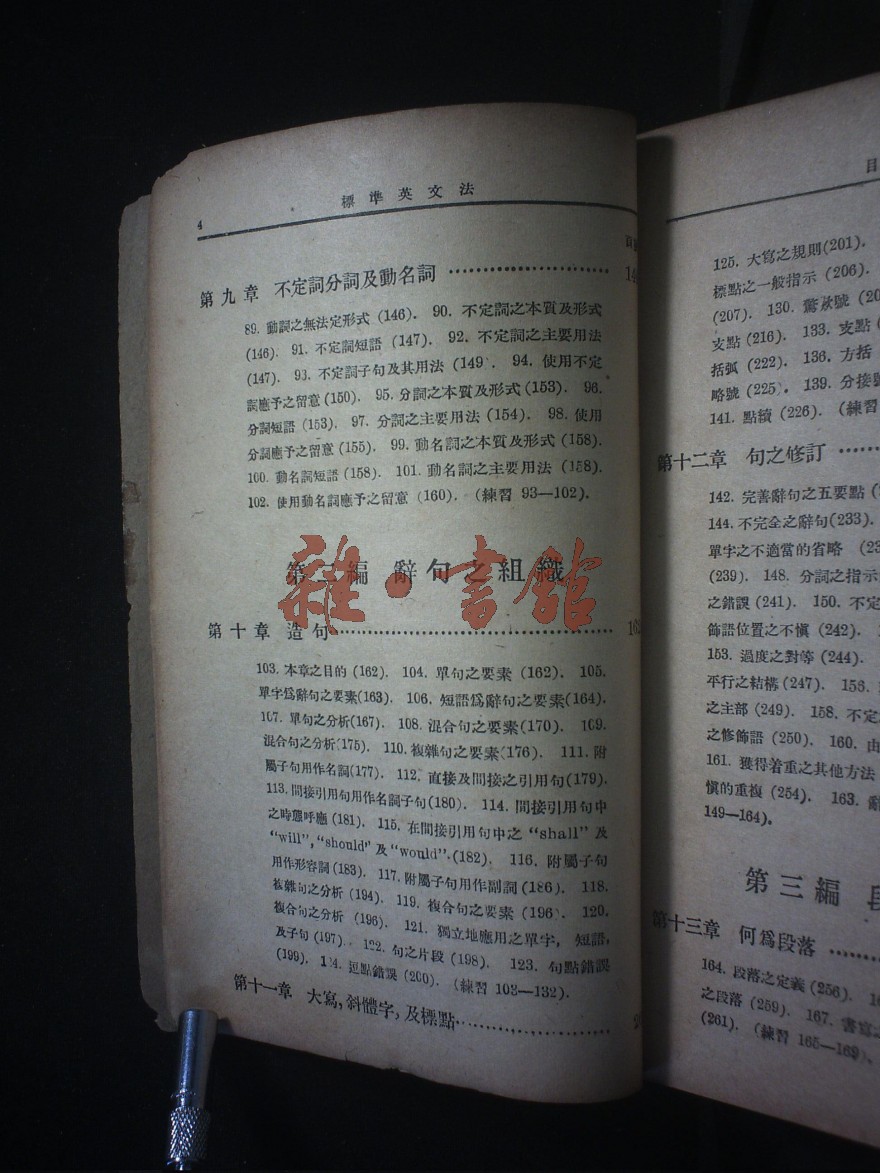 4
標準英文法
第九章 不定詞分詞及動名詞
89. 動詞之無法定形式 (146). 90. 不定詞之本質及形式
(146). 91. 不定詞短語 (147). 92. 不定詞之主要用法
(147). 93. 不定詞子句及其用法 (149). 94. 使用不定
詞應予之留意 (150). 95. 分詞之本質及形式 (153). 96.
分詞短語 (153). 97. 分詞之主要用法 (154). 98. 使用
分詞應予之留意 (155). 99. 動名詞之本質及形式 (158).
100. 動名詞短語 (158). 101. 動名詞之主要用法 (158).
102. 使用動名詞應予之留意 (160). (練習 93—102).
第二編 辭句之組織
雜·書館
第十章 造句
103. 本章之目的 (162). 104. 單句之要素 (162). 105.
單字爲辭句之要素(163). 106. 短語爲辭句之要素(164).
107. 單句之分析(167). 108. 混合句之要素(170). 109.
混合句之分析(175). 110. 複雜句之要素(176). 111. 附
屬子句用作名詞(177). 112. 直接及間接之引用句(179).
113. 間接引用句用作名詞子句(180). 114. 間接引用句中
之時態呼應 (181). 115. 在間接引用句中之 "shall" 及
"will", "should" 及 "would" (182). 116. 附屬子句
用作形容詞 (183). 117. 附屬子句用作副詞 (186). 118.
複雜句之分析 (194). 119. 複合句之要素 (196). 120.
複合句之分析 (196). 121. 獨立地應用之單字, 短語,
及子句 (197). 122. 句之片段 (198). 123. 句點錯誤
(199). 124. 逗點錯誤 (200). (練習 103—132).
第十一章 大寫, 斜體字, 及標點
目
125. 大寫之規則(201).
標點之一般指示 (206).
(207). 130. 驚歎號
支點 (216). 133. 支點
括弧 (222). 136. 方括
略號 (225). 139. 分接號
141. 點續 (226). (練習
第十二章 句之修訂
142. 完善辭句之五要點
144. 不完全之辭句(233).
單字之不適當的省略
(239). 148. 分詞之指示
之錯誤 (241). 150. 不定
飾語位置之不愼 (242).
153. 過度之對等 (244).
平行之結構 (247).
之主部 (249). 158. 不定
之修飾語 (250). 160. 由
161. 獲得着重之其他方法
愼的重複 (254). 163.
149—164).
第三編
第十三章 何爲段落
164. 段落之定義 (256).
之段落 (259). 167. 書寫
(261). (練習 165—169).